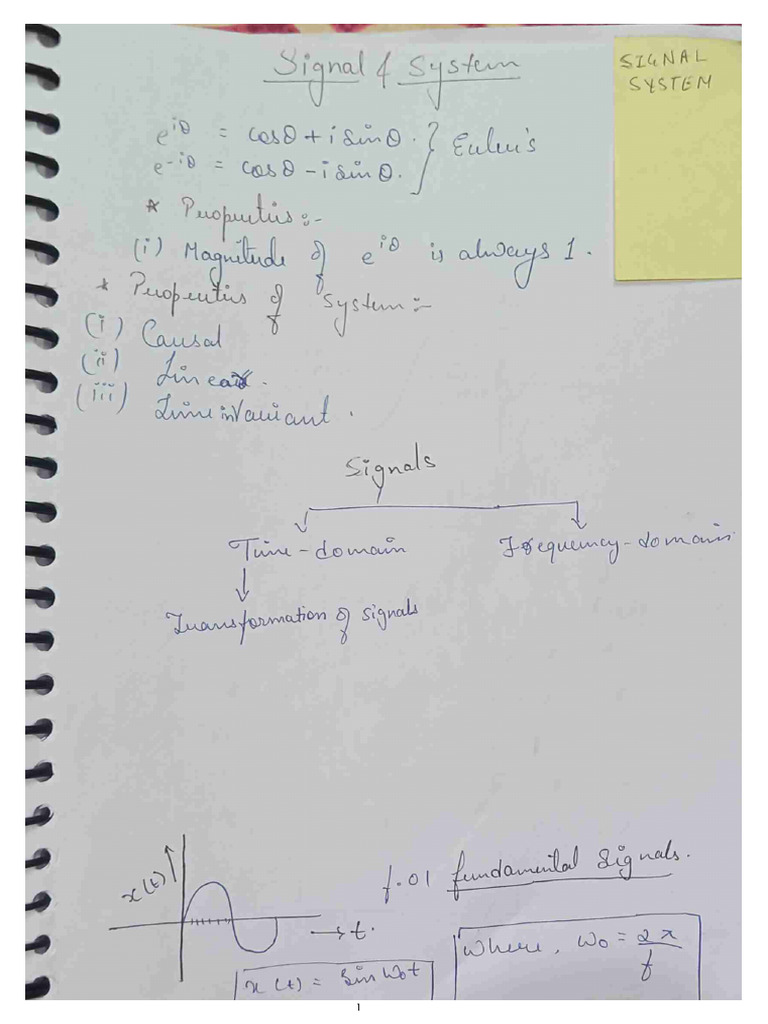 Signal & System
SIGNAL
SYSTEM
e^{iθ} = cosθ + i sinθ. } Euler's
e^{-iθ} = cosθ - i sinθ.
* Properties:-
(i) Magnitude of e^{iθ} is always 1.
* Properties of System:-
(i) Causal
(ii) Linear.
(iii) Time inVariant.
Signals
Time-domain
Frequency-domain
Transformation of signals
x(t)
t.
f.01 fundamental Signals.
x(t) = Sin ω₀t
Where, ω₀ = 2π/t
1